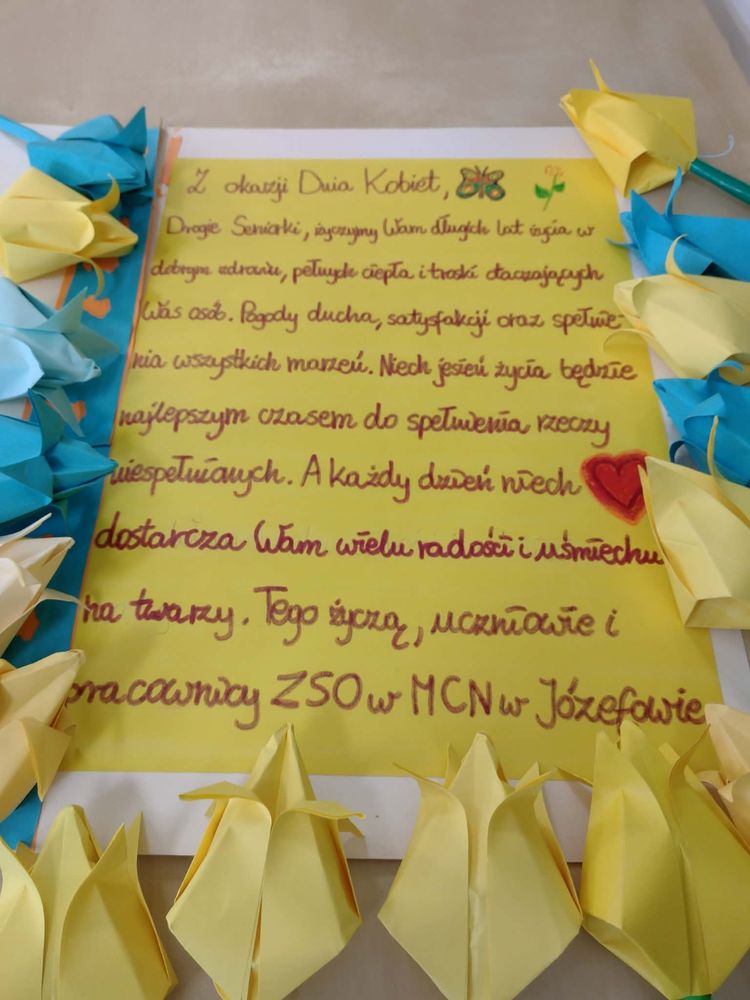 Z okazji Dnia Kobiet,
Drogie Seniorki, życzymy Wam długich lat życia w
dobrym zdrowiu, pełnych ciepła i troski otaczających
Was osób. Pogody ducha, satysfakcji oraz spełnie-
nia wszystkich marzeń. Niech jesień życia będzie
najlepszym czasem do spełnienia rzeczy
niespełnionych. A każdy dzień niech
dostarcza Wam wielu radości i uśmiechu
na twarzy. Tego życzą, uczniowie i
pracownicy ZSO w MCN w Józefowie